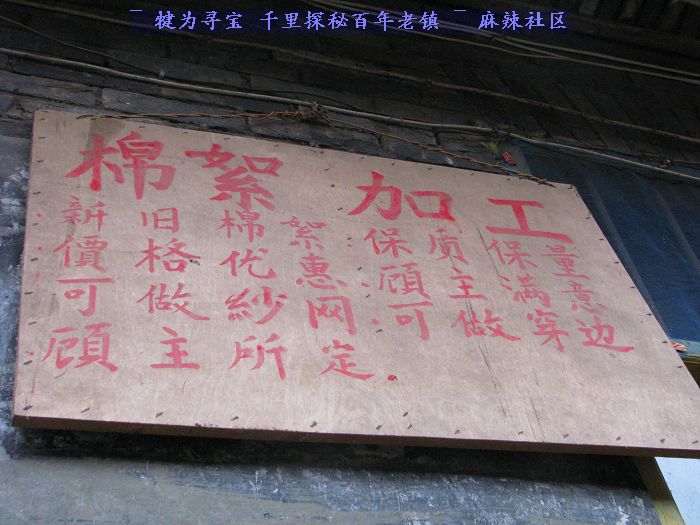 ¯ 犍为寻宝 千里探秘百年老镇 ¯ 麻辣社区
棉絮加工
新旧棉絮 保质保量
價格优惠 顾主满意
可做紗网 可做穿边
顾主所定。